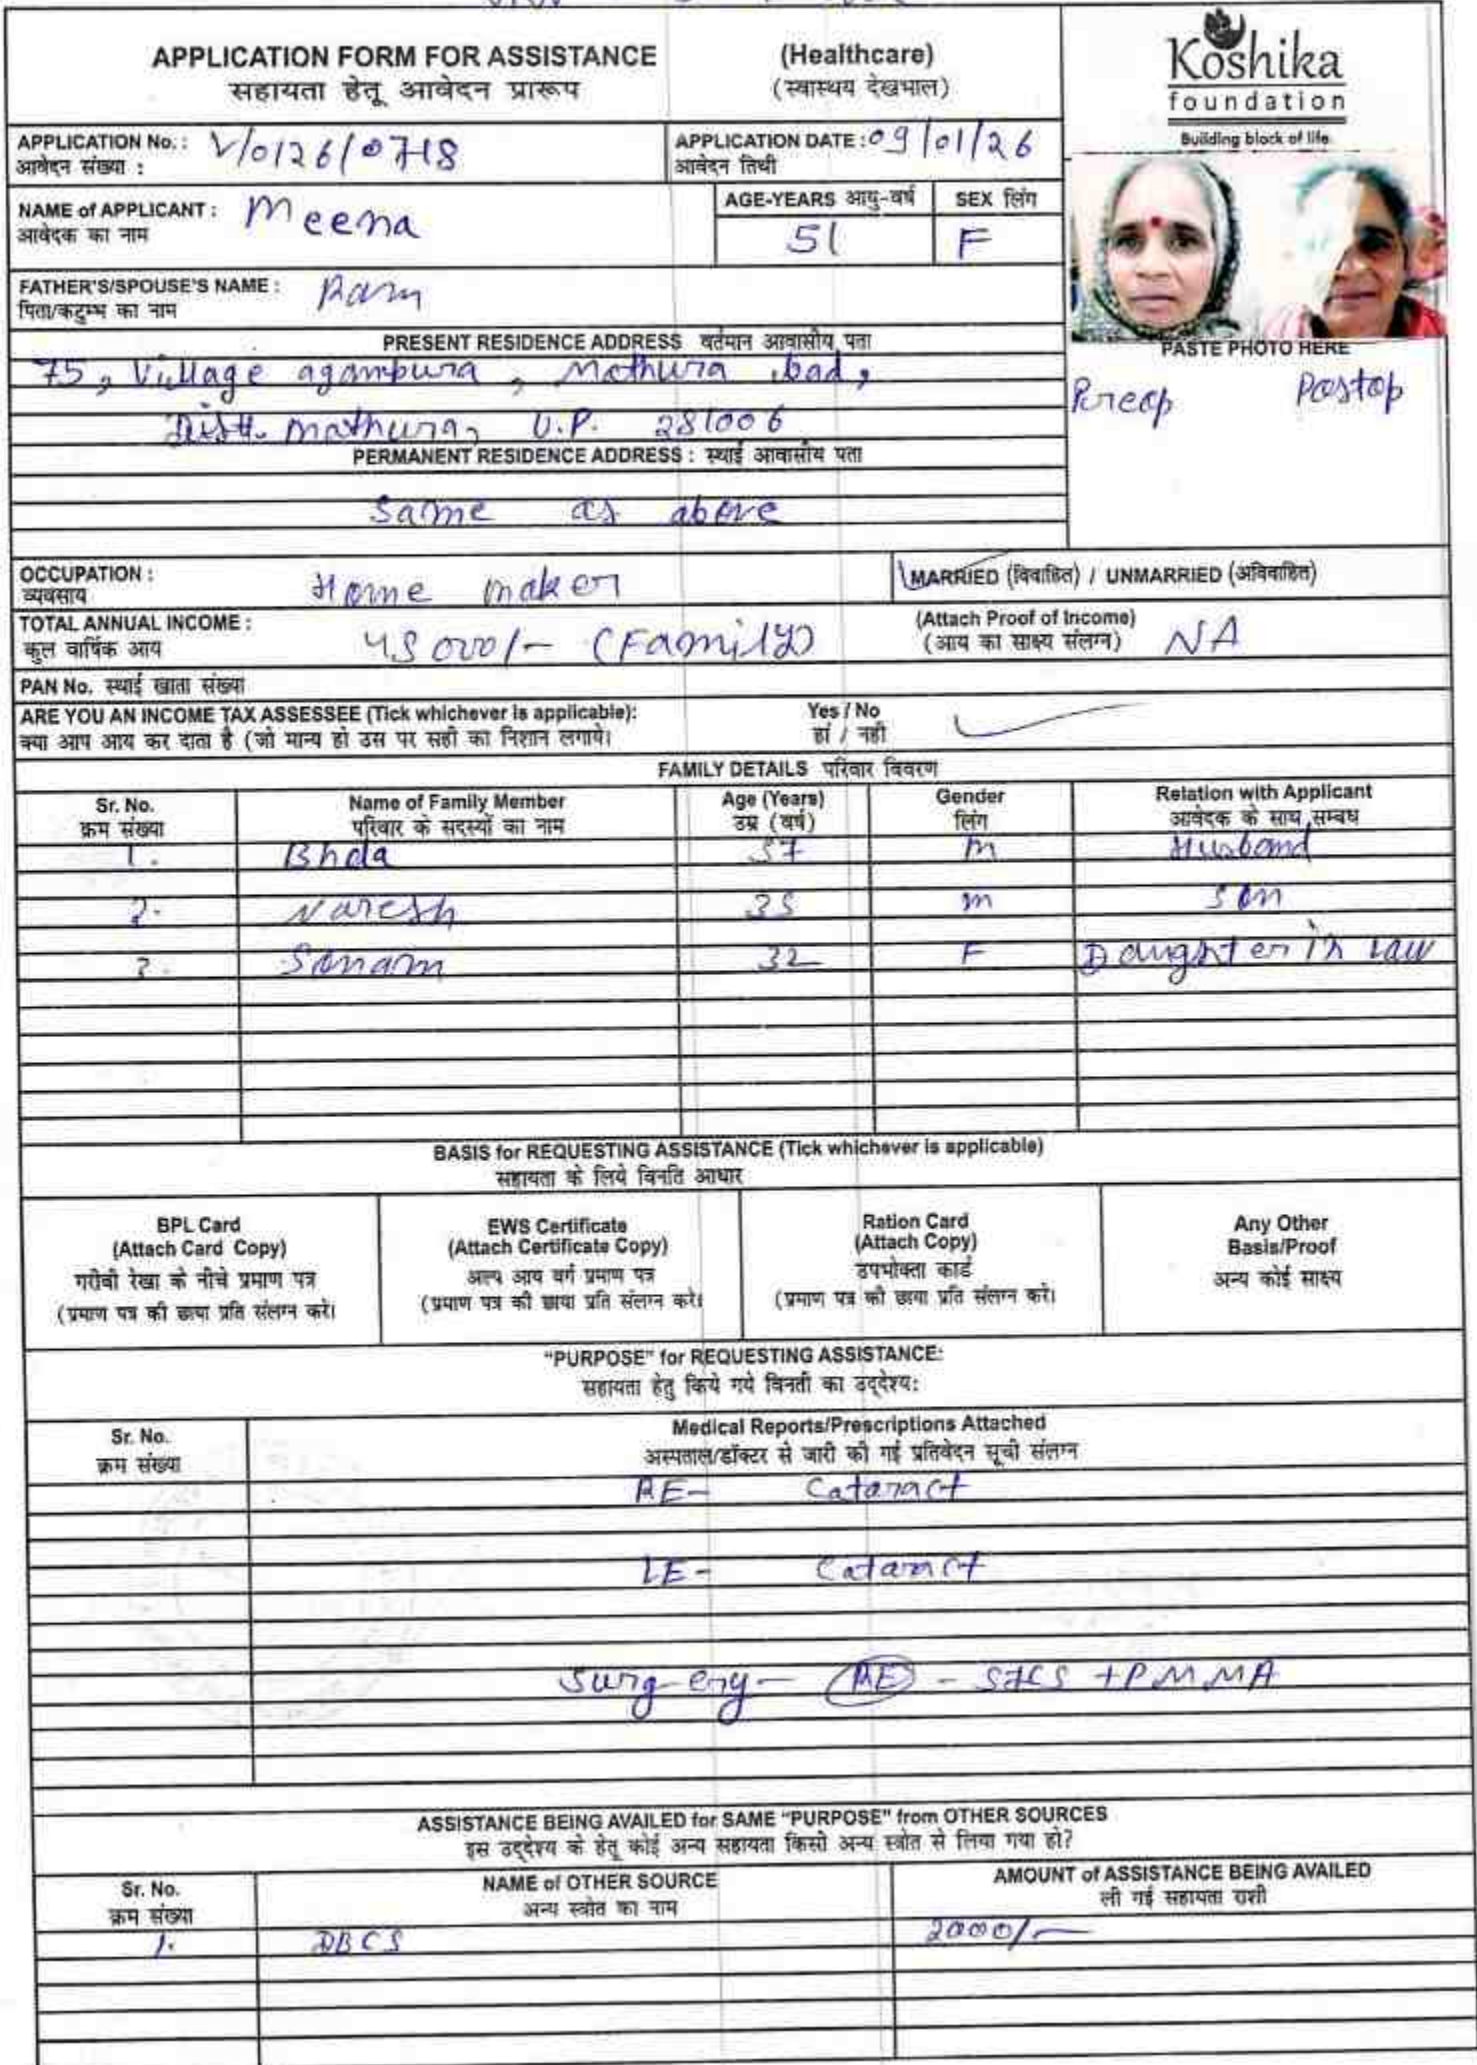 APPLICATION FORM FOR ASSISTANCE
सहायता हेतू आवेदन प्रारूप
(Healthcare)
(स्वास्थय देखभाल)
Koshika
foundation
Building block of life
APPLICATION No. : V/0126/0718
आवेदन संख्या :
APPLICATION DATE : 09/01/26
आवेदन तिथी
NAME of APPLICANT : Meena
आवेदक का नाम
AGE-YEARS आयु-वर्ष
51
SEX लिंग
F
FATHER'S/SPOUSE'S NAME : Ram
पिता/कटुम्भ का नाम
PASTE PHOTO HERE
Preop Postop
PRESENT RESIDENCE ADDRESS वर्तमान आवासीय पता
75, Village agampura, Mathura bad,
Distt. mathura, U.P. 281006
PERMANENT RESIDENCE ADDRESS : स्थाई आवासीय पता
Same as above
OCCUPATION : Home maker
व्यवसाय
MARRIED (विवाहित) / UNMARRIED (अविवाहित)
TOTAL ANNUAL INCOME : 48000/- (Family)
कुल वार्षिक आय
(Attach Proof of Income) NA
(आय का साक्ष्य संलग्न)
PAN No. स्थाई खाता संख्या
ARE YOU AN INCOME TAX ASSESSEE (Tick whichever is applicable): Yes / No
क्या आप आय कर दाता है (जो मान्य हो उस पर सही का निशान लगाये। हां / नही
FAMILY DETAILS परिवार विवरण
Sr. No. Name of Family Member Age (Years) Gender Relation with Applicant
क्रम संख्या परिवार के सदस्यों का नाम उम्र (वर्ष) लिंग आवेदक के साथ सम्बध
1. 57 m Husband
2. Naresh 35 m Son
3. Sonam 32 F Daughter in law
BASIS for REQUESTING ASSISTANCE (Tick whichever is applicable)
सहायता के लिये विनति आधार
BPL Card
(Attach Card Copy)
गरीबी रेखा के नीचे प्रमाण पत्र
(प्रमाण पत्र की छाया प्रति संलग्न करे।
EWS Certificate
(Attach Certificate Copy)
अल्प आय वर्ग प्रमाण पत्र
(प्रमाण पत्र की छाया प्रति संलग्न करे।
Ration Card
(Attach Copy)
उपभोक्ता कार्ड
(प्रमाण पत्र की छाया प्रति संलग्न करे।
Any Other
Basis/Proof
अन्य कोई साक्ष्य
"PURPOSE" for REQUESTING ASSISTANCE:
सहायता हेतु किये गये विनती का उद्देश्य:
Sr. No.
क्रम संख्या
Medical Reports/Prescriptions Attached
अस्पताल/डॉक्टर से जारी की गई प्रतिवेदन सूची संलग्न
RE- Cataract
LE- Cataract
Surgery- RE - SICS +PMMA
ASSISTANCE BEING AVAILED for SAME "PURPOSE" from OTHER SOURCES
इस उद्देश्य के हेतू कोई अन्य सहायता किसी अन्य स्त्रोत से लिया गया हो?
Sr. No. NAME of OTHER SOURCE AMOUNT of ASSISTANCE BEING AVAILED
क्रम संख्या अन्य स्त्रोत का नाम ली गई सहायता राशी
1. DBCS 2000/-